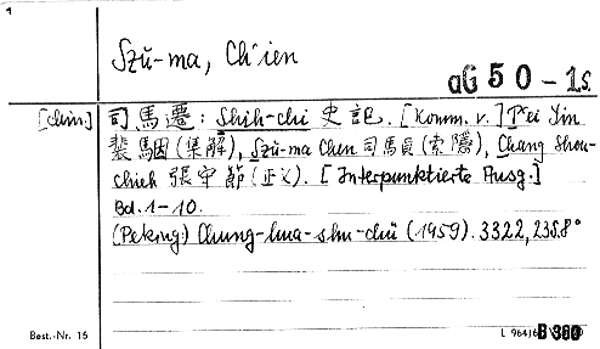 1
Szŭ-ma, Ch'ien
aG 50-1s.
[chin.] 司馬遷: Shih-chi 史記. [Komm. v.] P'ei Yin
裴駰(集解), Szŭ-ma Chen 司馬貞(索隱), Chang Shou-
chieh 張守節(正义). [Interpunktierte Ausg.]
Bd. 1-10.
(Peking:) Chung-hua-shu-chü (1959). 3322, 235 8°
Best.-Nr. 15
L 96416 B 360